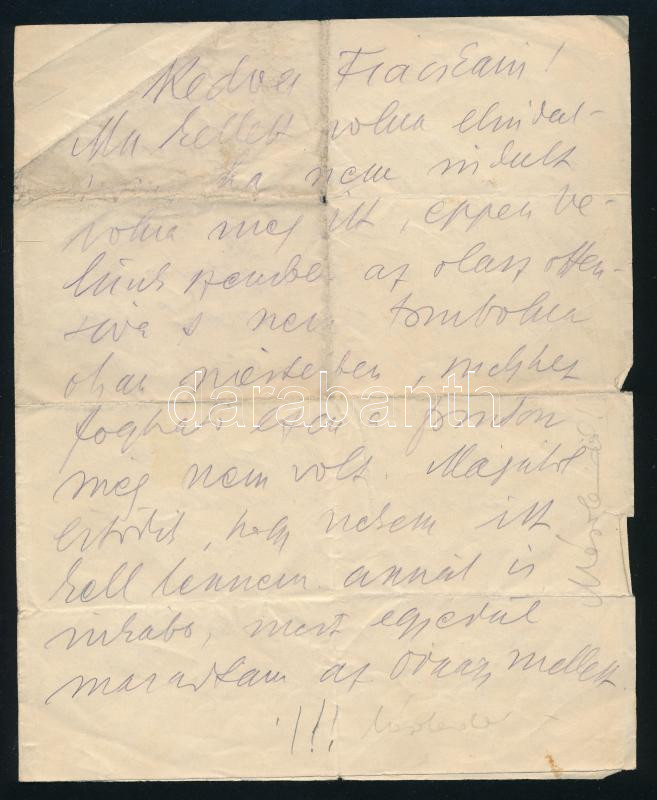 Kedves Fiacskám!
Ma kellett volna elindul-
ha nem indult
volna meg itt, éppen ve-
lünk szemben az olasz offen-
siva s nem tombolna
olyan mértékben, melyhez
fogható ezen a fronton
még nem volt. Magától
értődik, hogy nekem itt
kell lennem annál is
inkább, mert egyedül
maradtam az őrnagy mellett
!!!
darabanth